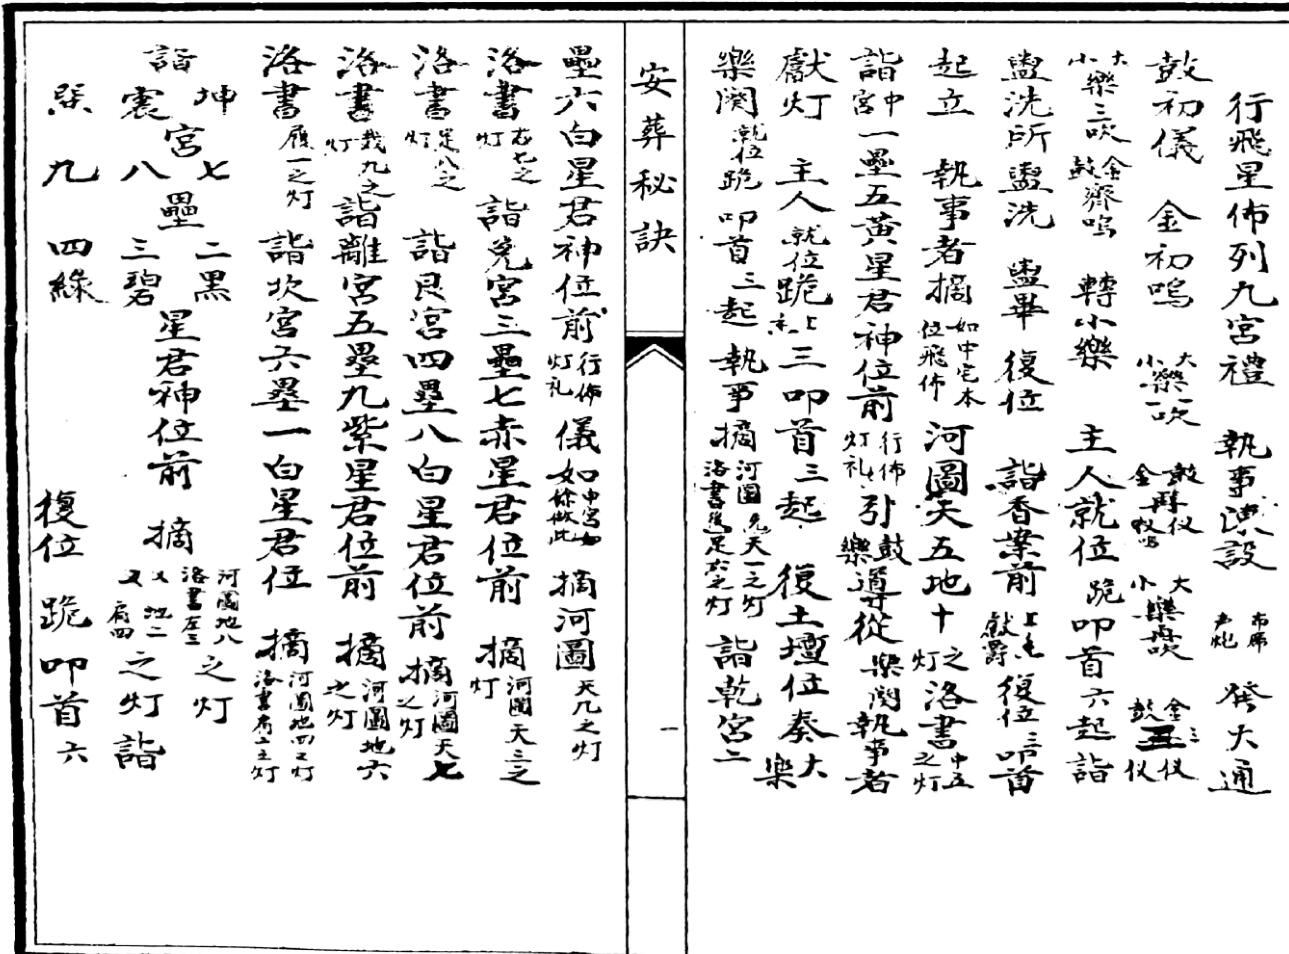 行飛星佈列九宮禮 執事演設 布席 声炮 發大通
鼓初儀 金初鳴 大樂一吹 小 鼓 仪 金 大樂 吹 小 金三 鼓 仪
大樂三吹 小 金鼓齊鳴 轉小樂 主人就位 跪叩首六起詣
盥洗所盥洗 盥畢 復位 詣香案前 献爵 復位 三叩首
起立 執事者摘 如中宅本位飛佈 河圖天五地十之灯 洛書中五之灯
詣中宮一壘五黃星君神位前 行佈灯礼 引鼓樂導從 樂闋執事者
獻灯 主人就位跪 上 三叩首三起 復土壇位奏大樂
樂闋 就位跪 叩首三起 執事摘 河圖 天一之灯 洛書 足六之灯 詣乾宮二
安葬秘訣
一
壘六白星君神位前 行佈灯礼 儀如中宮 餘倣此 摘河圖天九之灯
洛書右七之灯 詣兌宮三壘七赤星君位前 摘河圖天三之灯
洛書足八之灯 詣艮宮四壘八白星君位前 摘河圖天七之灯
洛書戴九之灯 詣離宮五壘九紫星君位前 摘河圖地六之灯
洛書履一之灯 詣坎宮六壘一白星君位 摘河圖地四之灯 洛書肩二之灯
詣 坤 震 宮 七 八 壘 二黑 三碧 星君神位前 摘 河圖地八 洛書左三 之灯 又 地二 又 肩四 之灯 詣
巽 九 四綠 復位 跪 叩首 六